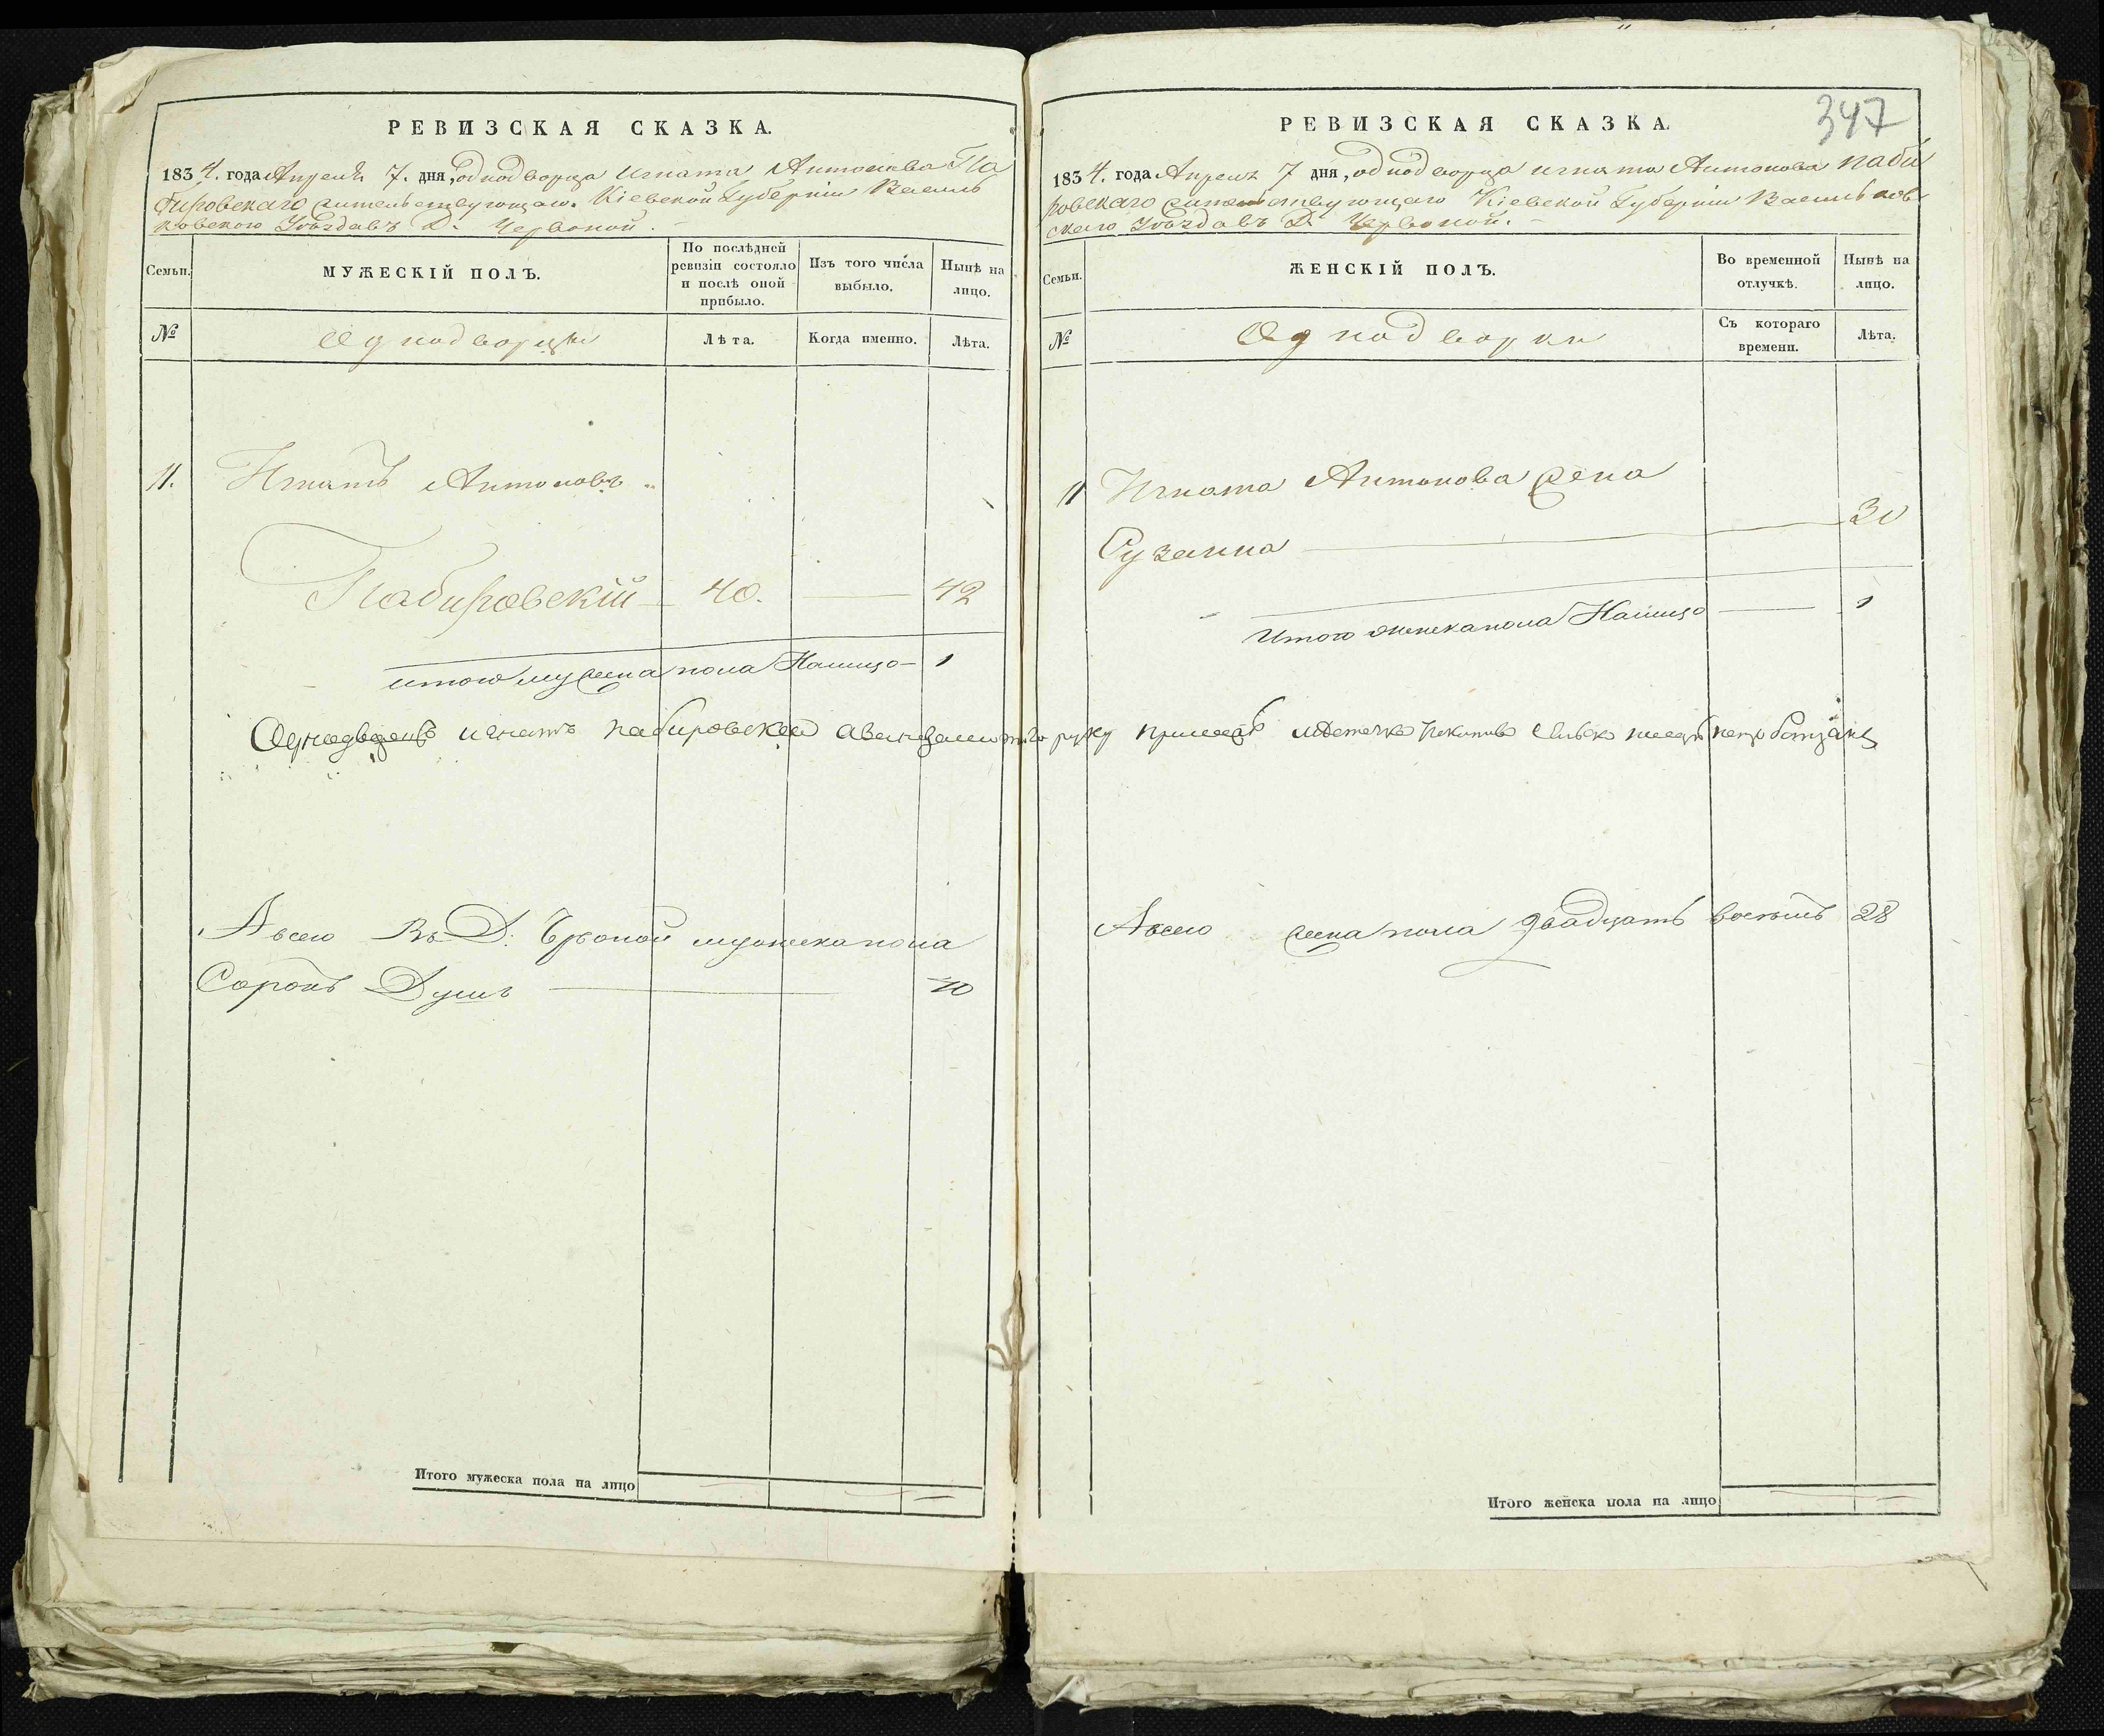 РЕВИЗСКАЯ СКАЗКА.
1834. года Апреля 7. дня, однодворца Игната Антонова Па
бировскаго жительствующаго Кіевской Губерніи Василь
ковского Уѣзда въ Д. Червоной.
Семьи.
МУЖЕСКІЙ ПОЛЪ.
По послѣдней ревизіи состояло и послѣ оной прибыло.
Изъ того числа выбыло.
Нынѣ на лицо.
№
Однодворцы
Лѣта.
Когда именно.
Лѣта.
11. Игнатъ Антоновъ
Пабировскій 40. 42
итого мужеска пола Налицо 1
игнатъ пабировскей
Авсего Въ Д: Чрвоной мужека пола
Сорокъ Душъ 40
Итого мужеска пола на лицо
347
РЕВИЗСКАЯ СКАЗКА.
1834. года Апреля 7 дня, однодворца игната Антонова паби
ровскаго жительствующаго Кіевской Губерніи Васильков
скаго Уѣзда въ Д. Червоной.
Семьи.
ЖЕНСКІЙ ПОЛЪ.
Во временной отлучкѣ.
Нынѣ на лицо.
№
Однодворки
Съ котораго времени.
Лѣта.
11 Игната Антонова жена
Сузанна 30
Итого женска пола Налицо 1
руку
Авсего жена пола двадцать восемь 28
Итого женска пола на лицо